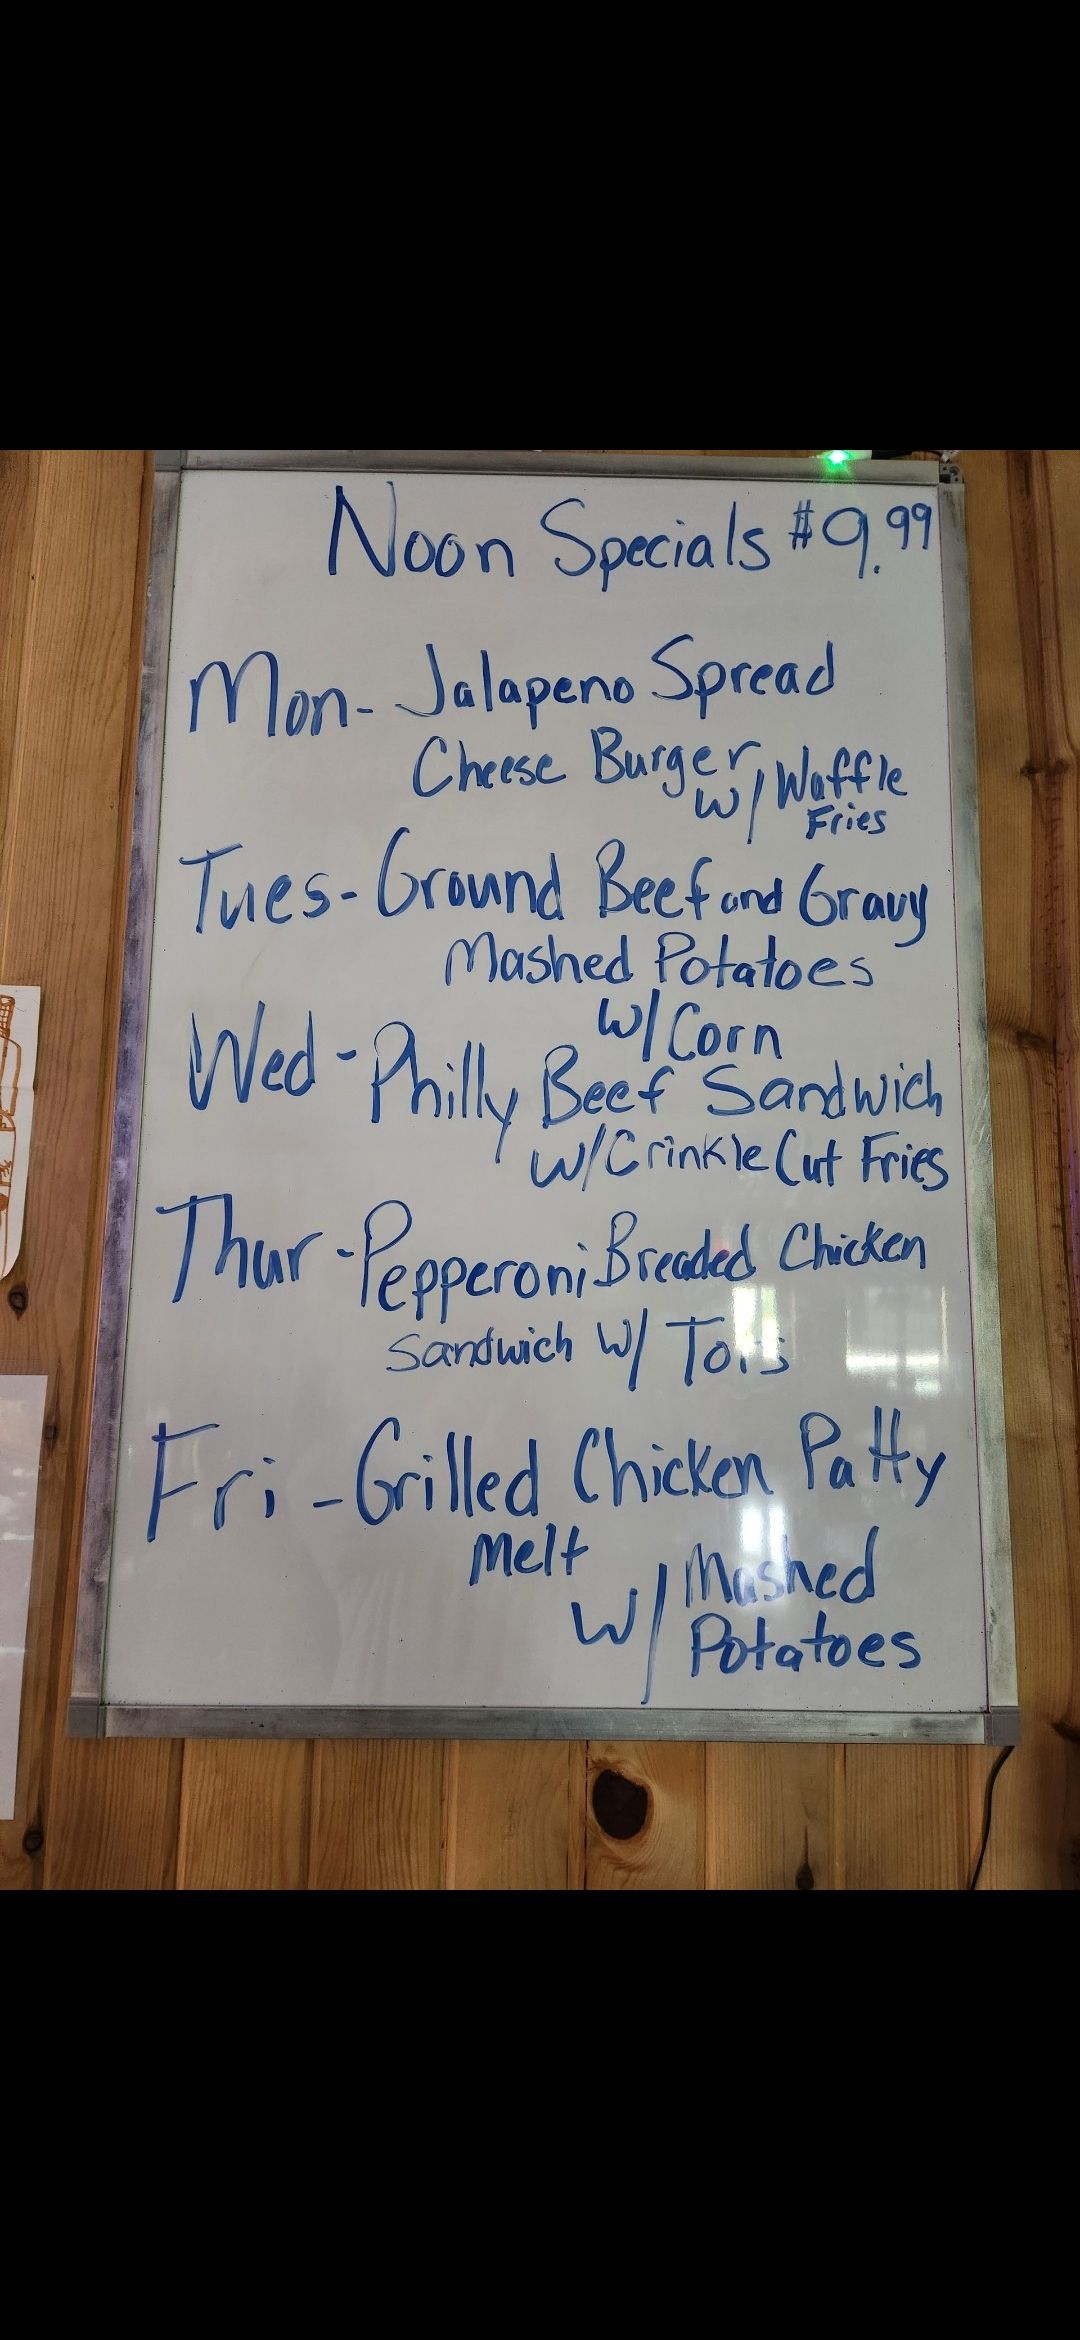 Noon Specials $9.99
Mon- Jalapeno Spread
Cheese Burger
w/ Waffle
Fries
Tues- Ground Beef and Gravy
Mashed Potatoes
w/ Corn
Wed - Philly Beef Sandwich
w/ Crinkle Cut Fries
Thur - Pepperoni Breaded Chicken
Sandwich w/ Tots
Fri - Grilled Chicken Patty
Melt
w/ Mashed
Potatoes